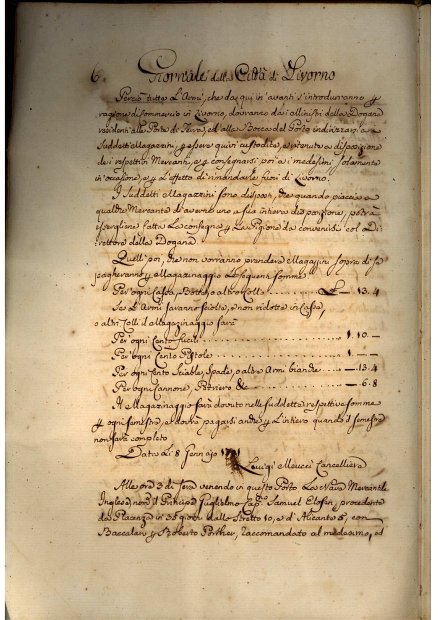 6. Giornale della Città di Livorno
Perciò tutte l'Armi, che da qui in' avanti s'introdurranno
ragione di Commercio in Livorno, dovranno da i Ministri della Dogana
residenti alle Porte di Terra, ed alla Bocca del Porto indirizzarsi a
Suddetti Magazzini, esservi quivi custodite, e ritenute a disposizione
dei respettivi Mercanti, e consegnarsi poi a i medesimi solamente
in occasione, e l'effetto di rimandarle fuori di Livorno
I Suddetti Magazzini sono disposti, che quando piaccia a
qualche Mercante di averne uno a sua intera disposizione, potrà
esserglene fatta la consegna la Pigione da convenirsi col Di=
rettore della Dogana
Quelli poi, che non vorranno prendere Magazzini sopra di se
pagheranno Magazzinaggio le seguenti somme
Per ogni Cassa, Botte, o altro Collo £ — 13. 4
Se l'Armi saranno sciolte, e non ridotte in Casse,
o altri Colli il Magazzinaggio sarà
Per ogni Cento fucili 1. 10. —
Per ogni Cento Pistole 1. — —
Per ogni Cento Sciable, Spade, o altre Armi bianche — 13. 4
Per ogni Cannone, Petriero &c — 6. 8
Il Magazzinaggio sarà dovuto nelle suddette respettive somme
ogni semestre, e dovrà pagarsi anche l'intiero quando il semestre
non sarà completo
Data li 8 Gennajo
Luigi Meucci Cancelliere
Alle ore 3 di sera venendo in questo Porto la Nave Mercantile
Inglese, nom. il Principe Guglielmo Cap.° Samuel procedente
da Piacenza in 35 giorni dallo Stretto 10, e d'Alicante 6, con
Baccalari Roberto Porther, raccomandato al medesimo, ed